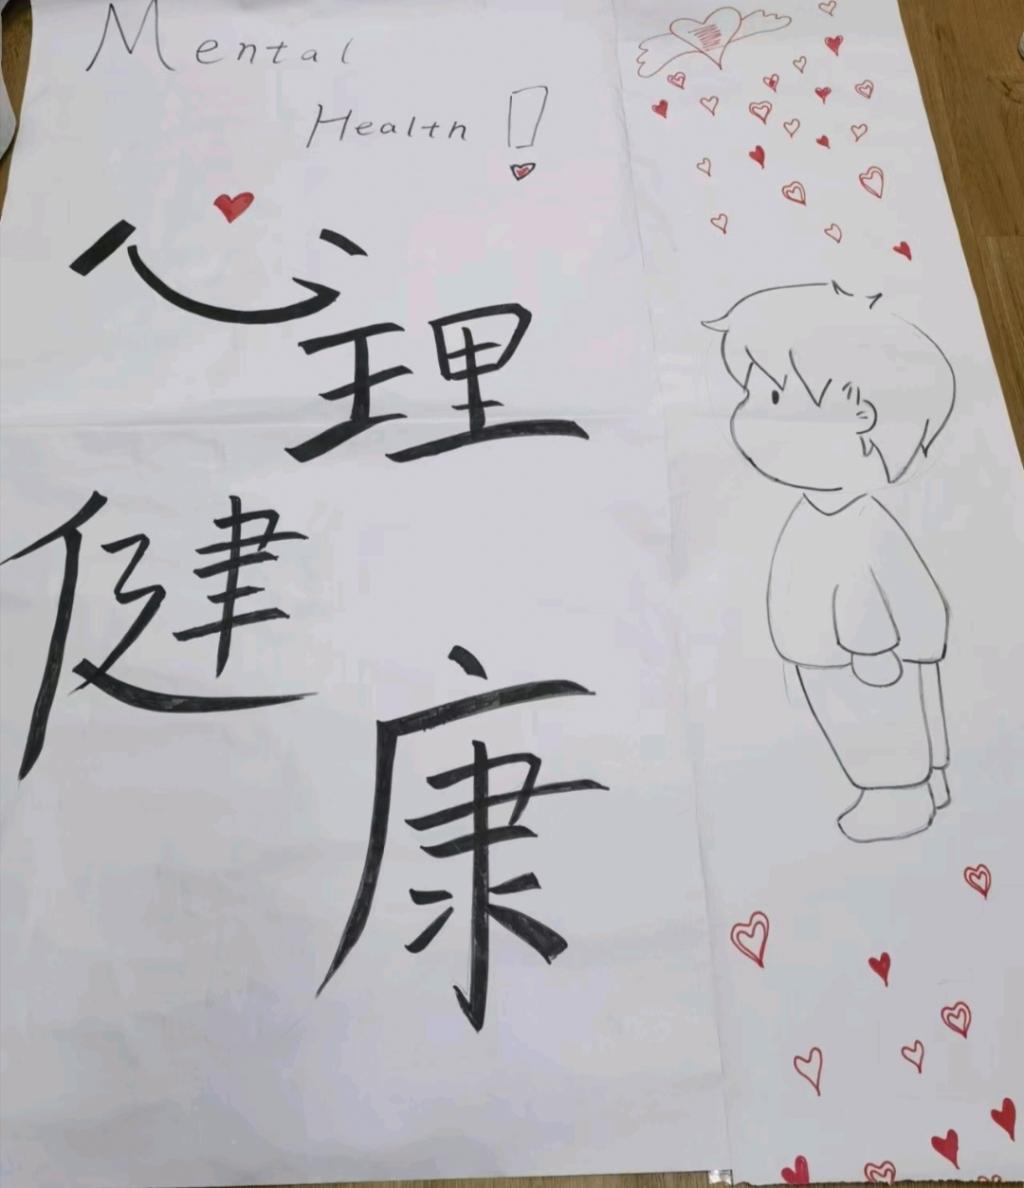 Mental
Health!
心理
健康